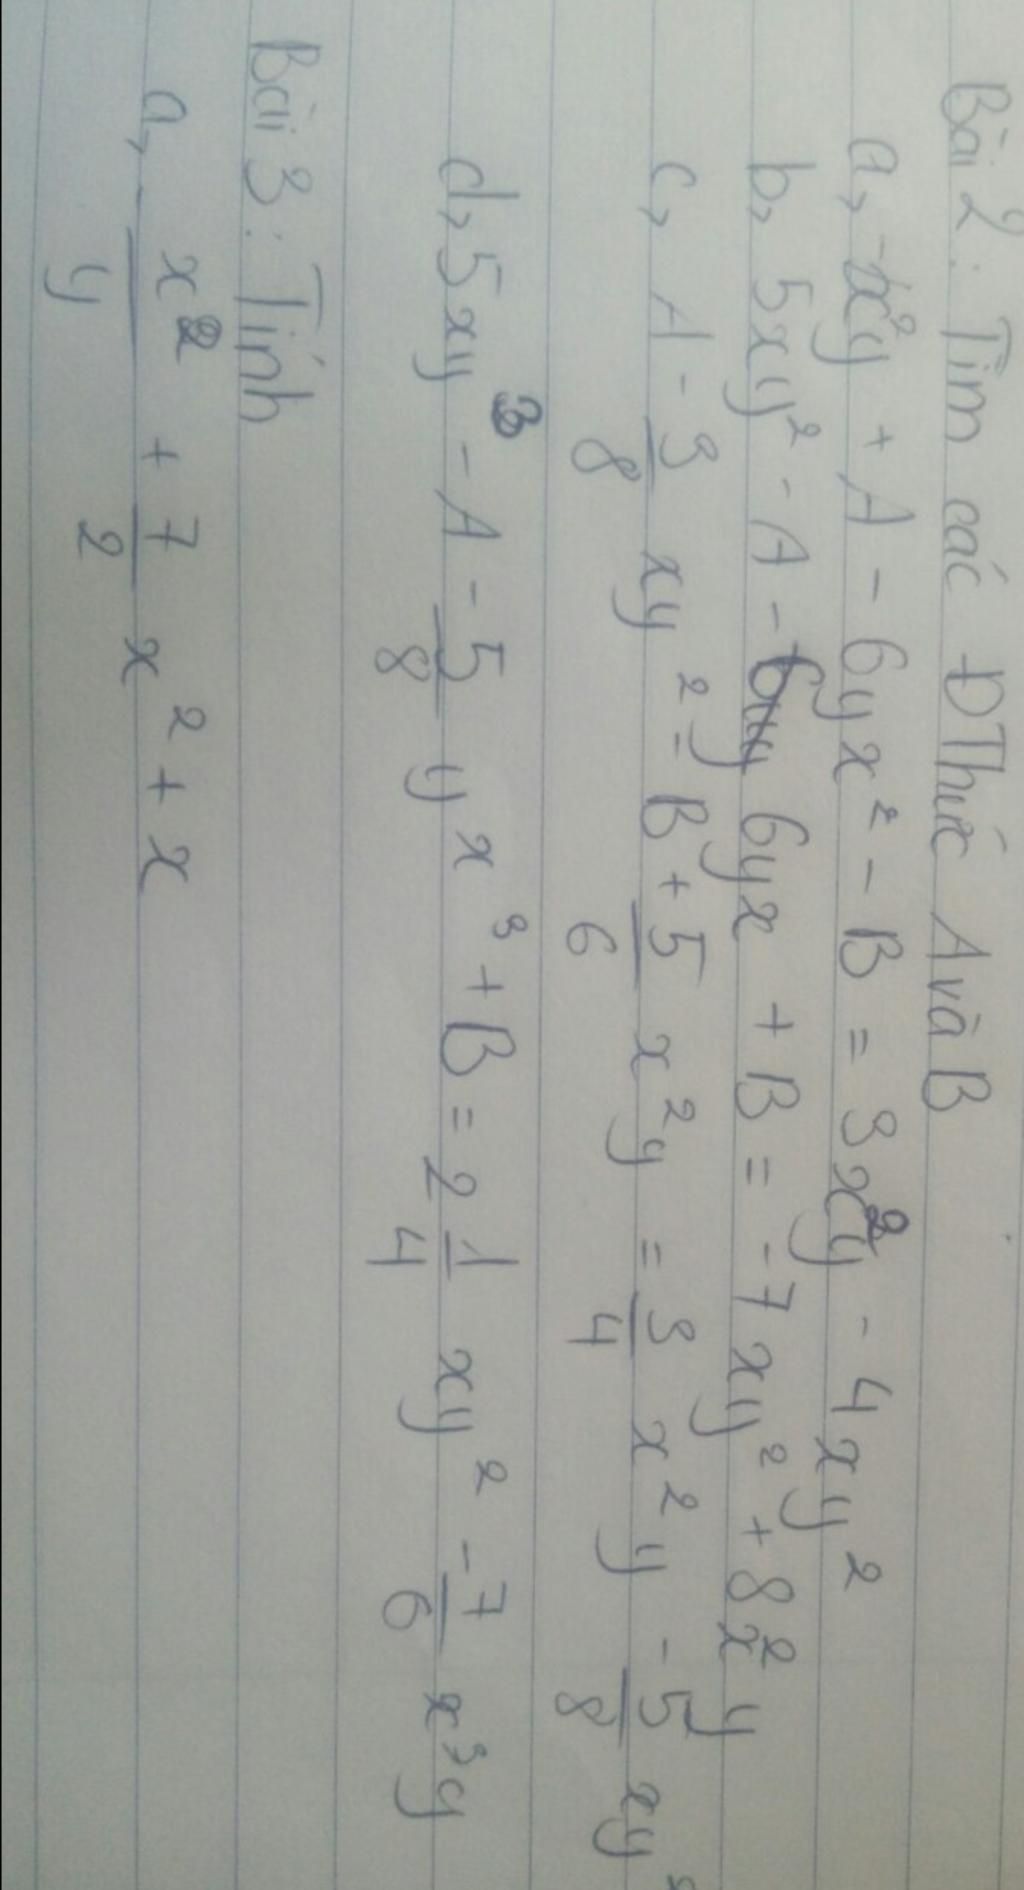 Bài 2: Tìm các ĐThức A và B
a, -x²y + A - 6yx² - B = 3x²y - 4xy²
b, 5xy² - A - 6yx + B = -7xy² + 8x²y
c, A - 3/8 xy² - B + 5/6 x²y = 3/4 x²y - 5/8 xy²
d, 5xy³ - A - 5/8 yx³ + B = 2 1/4 xy² - 7/6 x³y
Bài 3: Tính
a, - x²/y + 7/2 x² + x